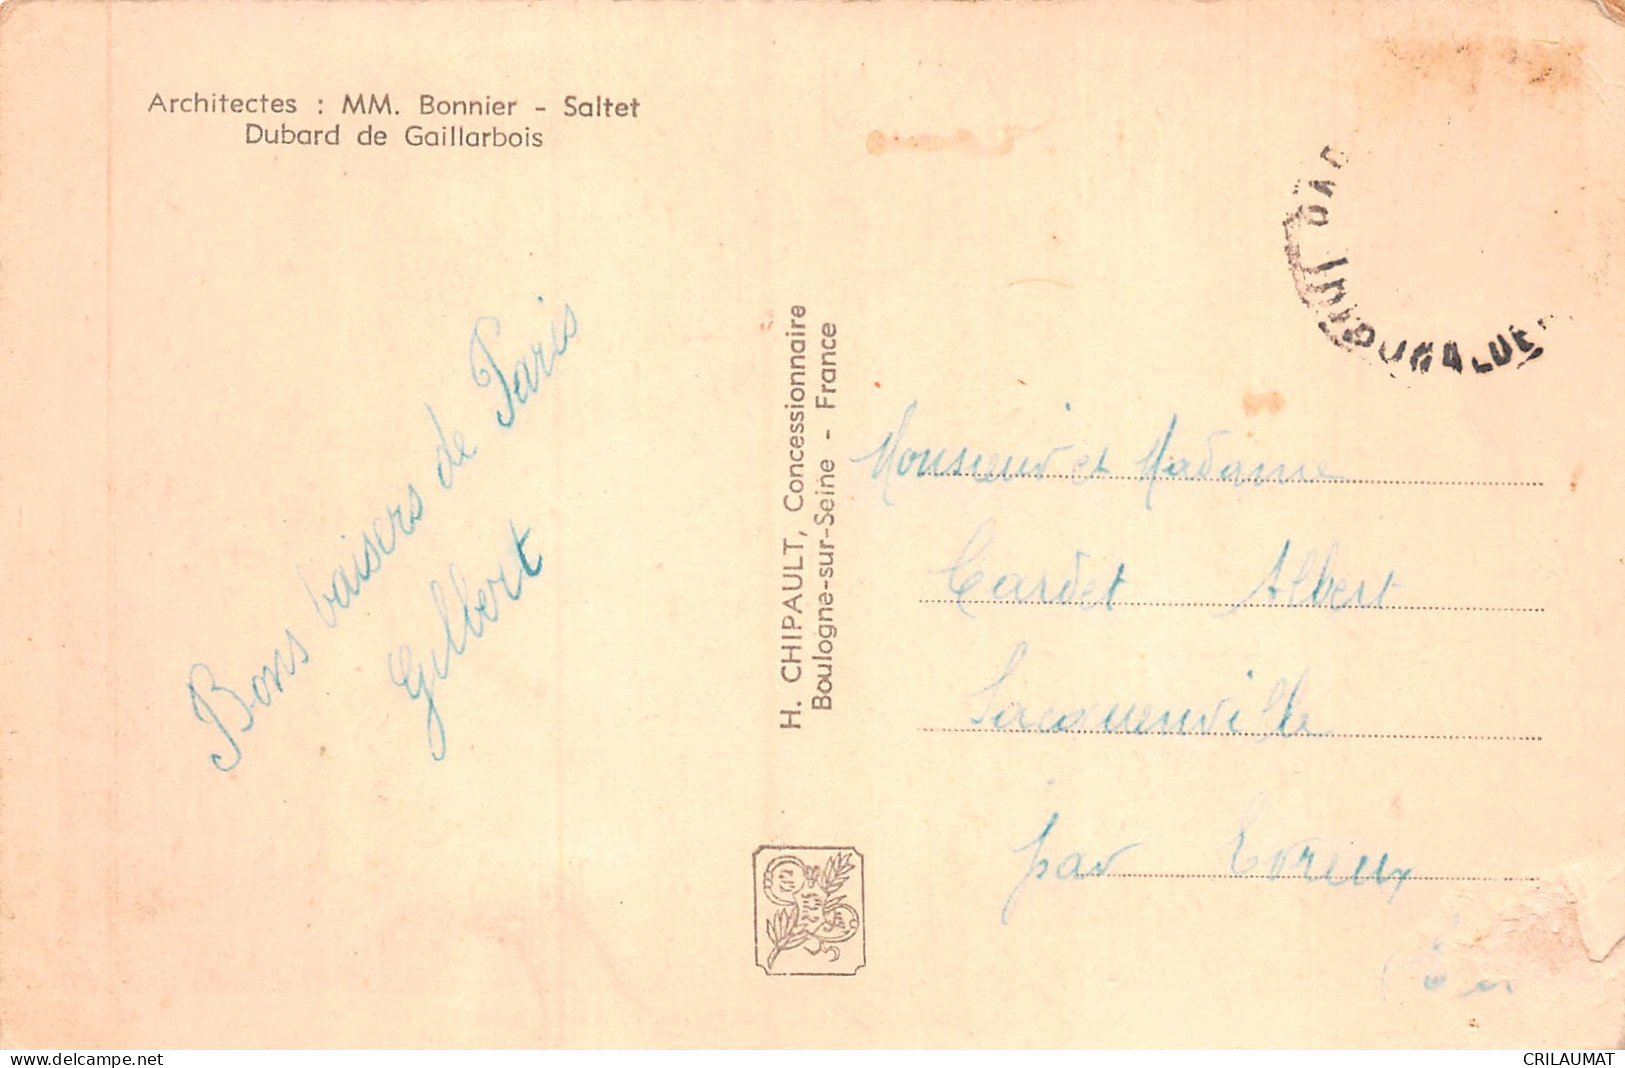 Architectes : MM. Bonnier - Saltet
Dubard de Gaillarbois
Bons baisers de Paris
Gilbert
H. CHIPAULT, Concessionnaire
Boulogne-sur-Seine - France
Monsieur et Madame
Cardet Albert
Sacquenville
par Evreux
delcampe.net
CRILAUMAT